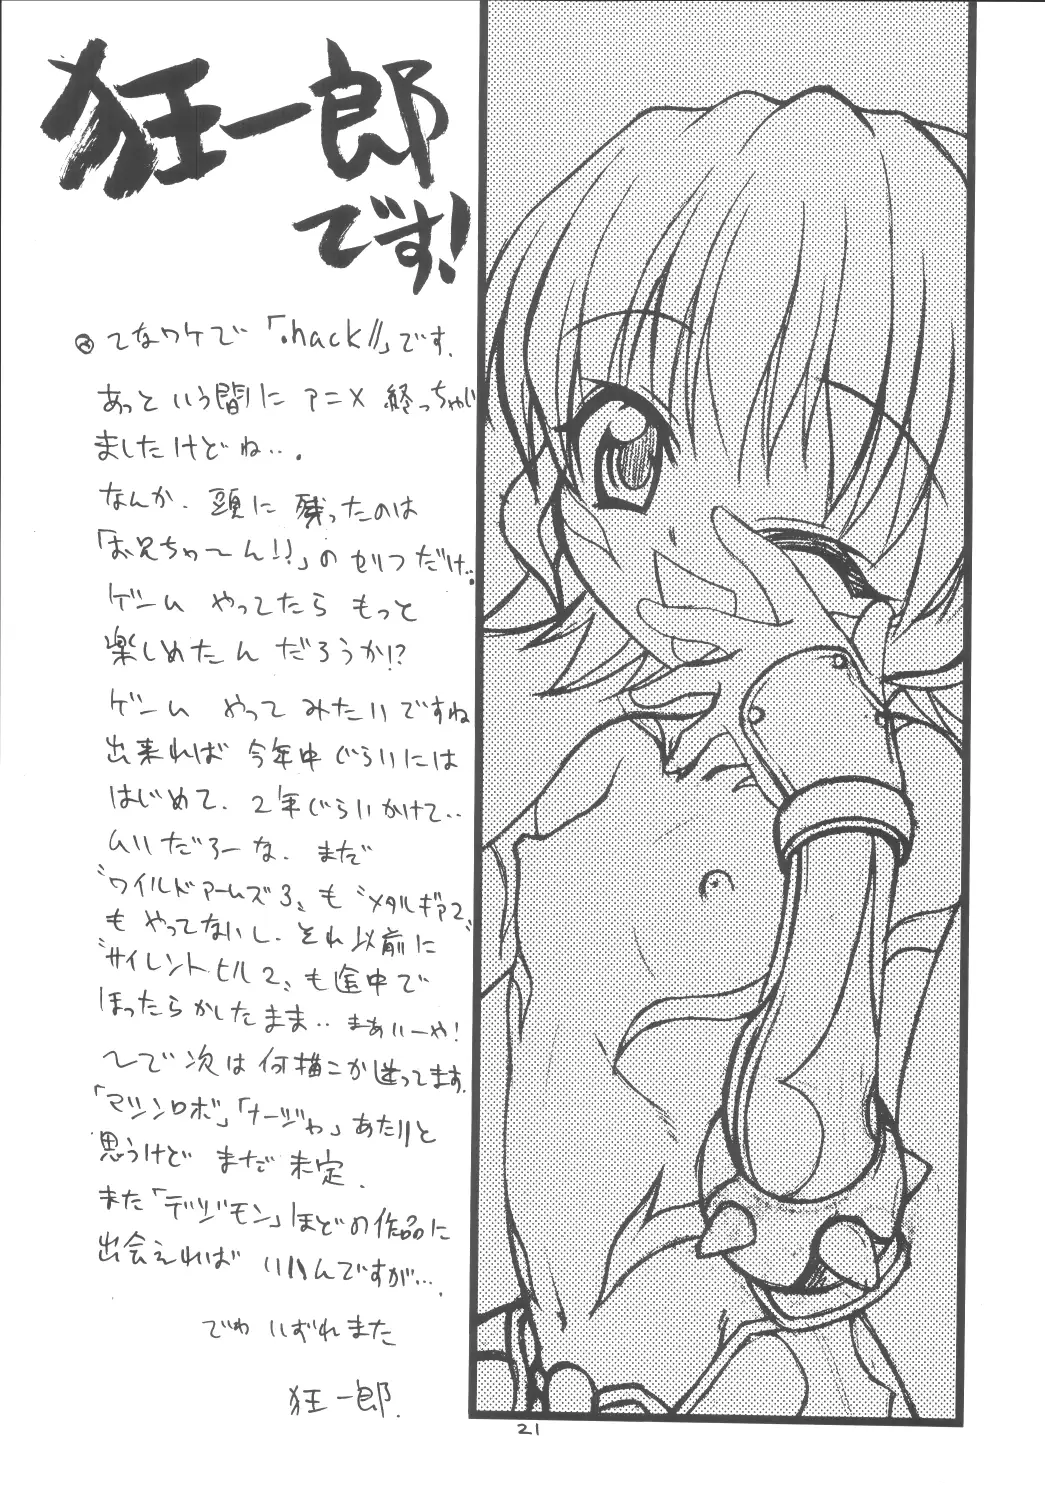 狂一郎
です!
てなワケで「.hack//」です.
あっという間にアニメ 終っちゃい
ましたけどね...
なんか. 頭に残ったのは
「お兄ちゃ〜ん!?」のセリフだけ..
ゲーム やってたら もっと
楽しめたんだろうか!?
ゲーム やって みたいですね
出来れば 今年中ぐらいには
はじめて. 2年ぐらいかけて..
ムリだろーな. まだ
〝ワイルドアームズ3〟も〝メタルギア2〟
も やってないし. それ以前に
〝サイレントヒル2〟も途中で
ほったらかしたまま.. まぁいーや!
〜で次は何描こか迷ってます.
「マシンロボ」「ナージャ」あたりと
思うけど まだ未定.
また「デジモン」ほどの作品に
出会えれば いいんですが....
でわ いずれまた
狂一郎.
21